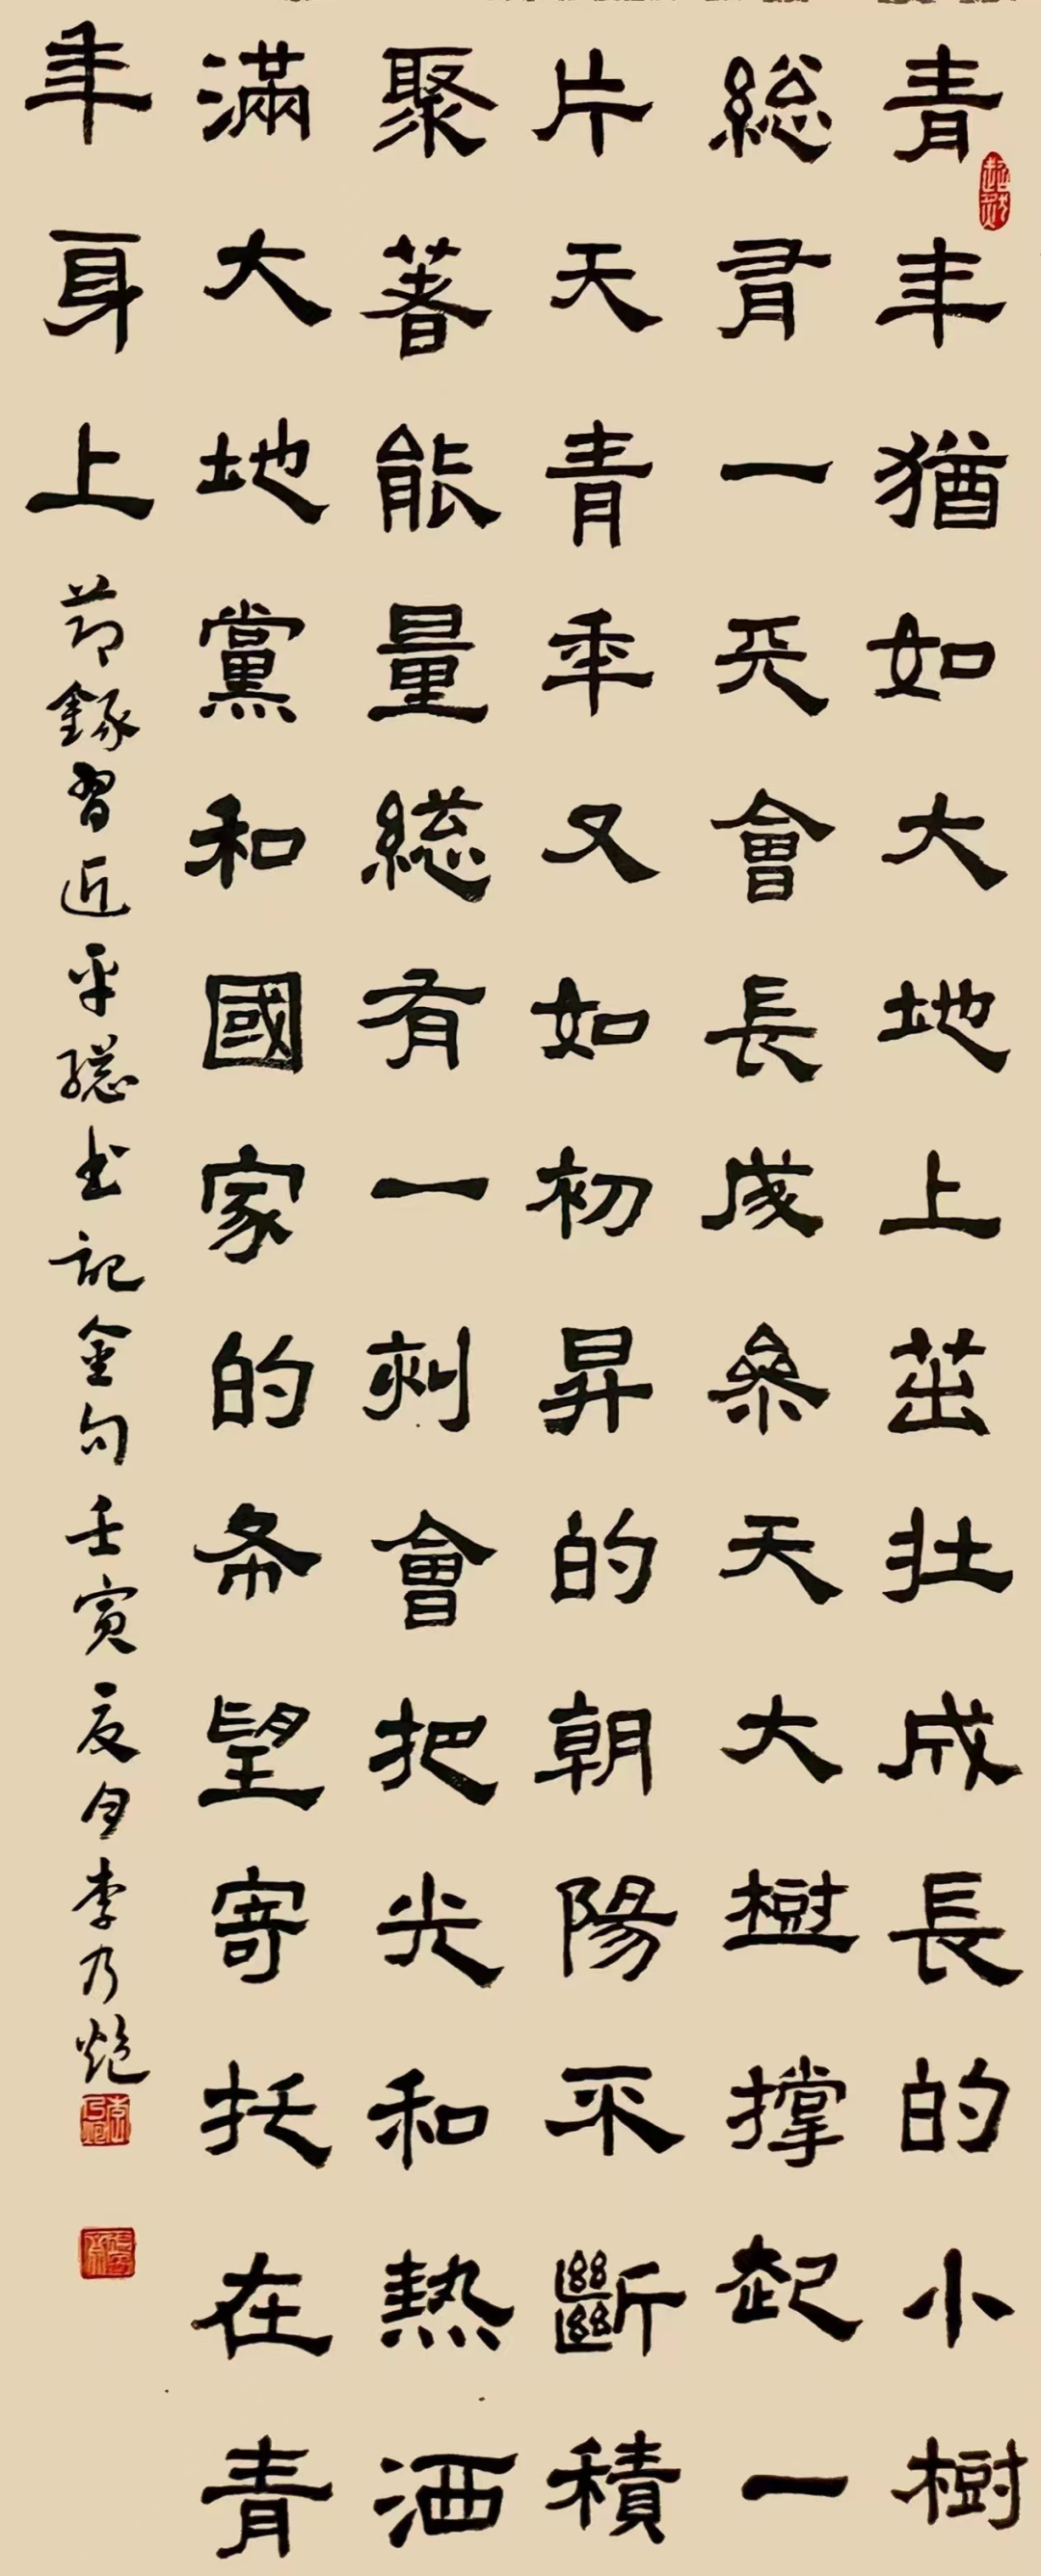 青年犹如大地上茁壮成長的小樹
総有一天會長成叅天大樹撑起一
片天青年又如初昇的朝陽不斷積
聚著能量総有一刻會把光和熱洒
滿大地黨和國家的希望寄托在青
年身上
节錄習近平總书記金句壬寅夏月李乃